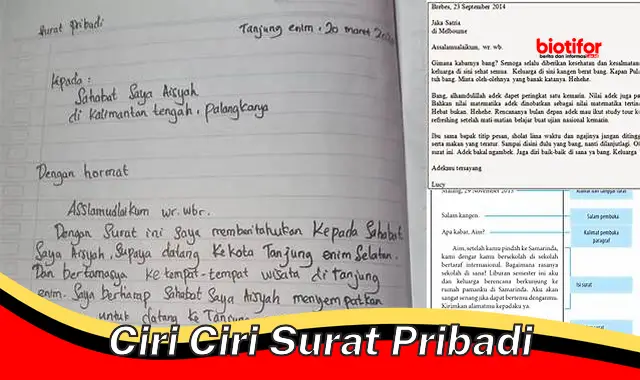 Surat pribadi
Tanjung enim, 20 maret
Kepada :
Sahabat Saya Aisyah
di Kalimantan tengah, palangkanya
Dengan hormat
Asslamualaikum wr. wbr.
Dengan Surat ini Saya memberitahukan Kepada Sahabat
Saya Aisyah, Supaya datang Ke Kota Tanjung enim Selatan.
Dan bertamasya Ke tempat-tempat wisata di Tanjung
enim. Saya berharap Sahabat Saya Aisyah menyempatkan
untuk datang Ke
Brebes, 23 September 2014
Jaka Satria
di Melbourne
Assalamualaikum, wr. wb.
biotifor
berita dan informasi
Gimana kabarnya bang? Semoga selalu diberikan kesehatan dan
keluarga di sini sehat semua. Keluarga di sini kangen berat bang. Kapan
tuh bang. Minta oleh-olehnya yang banak katanya. Hehehe.
Bang, alhamdulillah adek dapet peringkat satu kemarin. Nilai adek juga
Bahkan nilai matematika adek dinobatkan sebagai nilai matematika
Hebat bukan. Hehehe. Rencananya bulan depan adek mau ikut study tour
refreshing setelah mati-matian belajar buat ujian nasional kemarin.
Ibu sama bapak titip pesan, sholat lima waktu dan ngajinya jangan
serta makan yang teratur. Sampai disini dulu yang bang, nanti
surat ini. Adek bakal ngambek. Jaga diri baik-baik di sana ya bang. Keluarga
Adekmu tersayang
Lucy
Malang, 29 November 2013
Alamat dan tanggal surat
Salam kangen.
Salam pembuka
Apa kabar, Aim?
Kalimat pembuka
paragraf
Aim, setelah kamu pindah ke Samarinda,
kami dengar kamu bersekolah di sekolah
bertaraf internasional. Bagaimana rasanya
sekolah di sana? Liburan semester ini aku
dan keluarga berencana berkunjung ke
rumah pamanku di Samarinda. Aku akan
sangat senang jika dapat bertemu denganmu.
Kirimkan alamatmu kepadaku ya.
Isi surat
Ciri Ciri Surat Pribadi